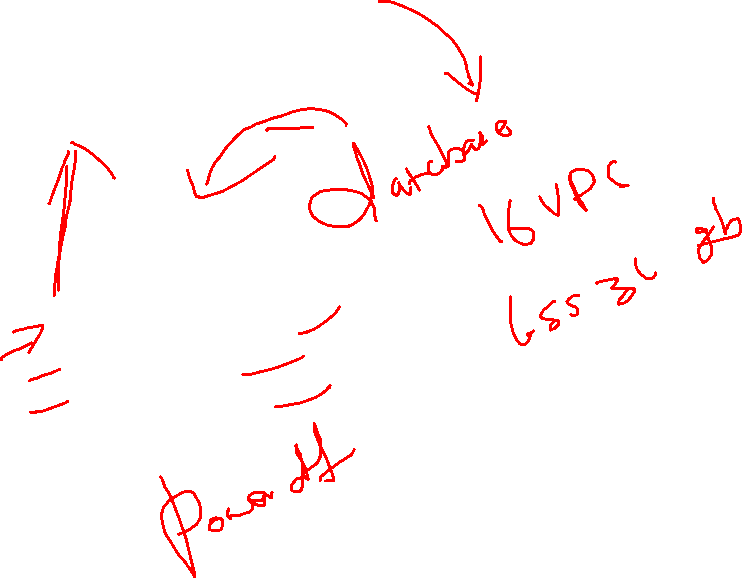 database
16 VPC
65536 gb
Poweroff